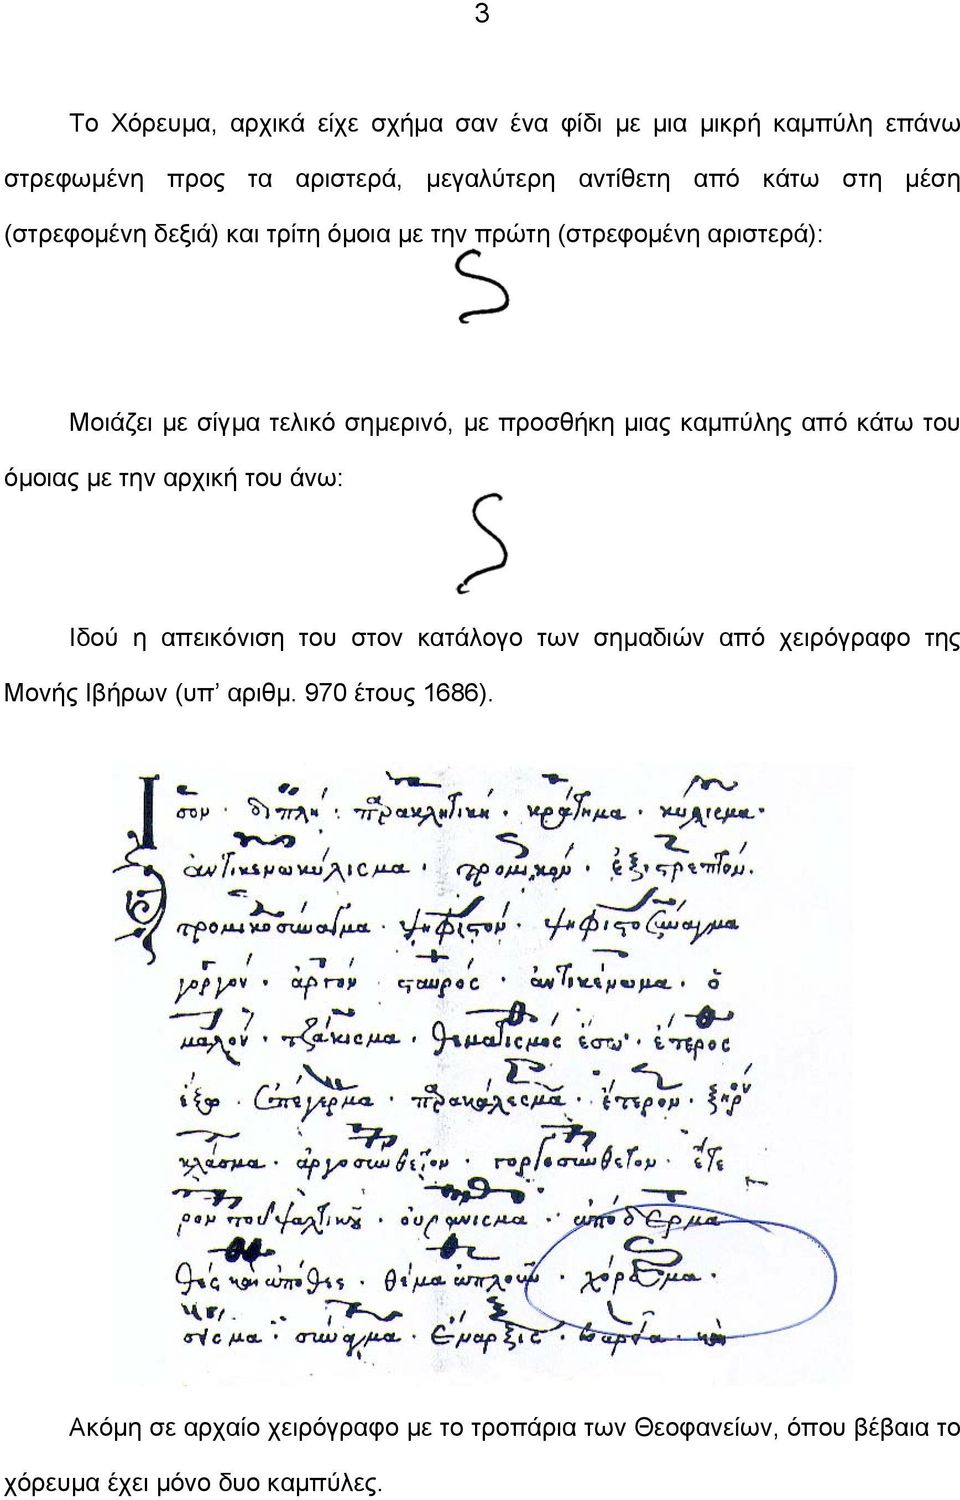 3
Το Χόρευμα, αρχικά είχε σχήμα σαν ένα φίδι με μια μικρή καμπύλη επάνω
στρεφωμένη προς τα αριστερά, μεγαλύτερη αντίθετη από κάτω στη μέση
(στρεφομένη δεξιά) και τρίτη όμοια με την πρώτη (στρεφομένη αριστερά):
Μοιάζει με σίγμα τελικό σημερινό, με προσθήκη μιας καμπύλης από κάτω του
όμοιας με την αρχική του άνω:
Ιδού η απεικόνιση του στον κατάλογο των σημαδιών από χειρόγραφο της
Μονής Ιβήρων (υπ’ αριθμ. 970 έτους 1686).
Ἴσον · διπλή · παρακλητική · κράτημα · κύλισμα ·
ἀντικενωκύλισμα · τρομικόν · ἐξστρεπτόν ·
τρομικοσύναγμα · ψηφιστόν · ψηφιστοσύναγμα
γοργόν · ἀργόν · σταυρός · ἀντικένωμα · ὁ
μαλόν · τζάκισμα · θεματισμός ἔσω · ἕτερος
ἔξω · ἐπέγερμα · παρακάλεσμα · ἕτερον · ξηρόν
κλάσμα · ἀργοσύνθετον · γοργοσύνθετον · ἕτε
ρον τοῦ ψαλτικοῦ · οὐράνισμα · ἀπόδερμα
θές καὶ ἀπόθες · θέμα ἁπλοῦν · χόρευμα ·
σύναγμα · Ἔναρξις ·
Ακόμη σε αρχαίο χειρόγραφο με το τροπάρια των Θεοφανείων, όπου βέβαια το
χόρευμα έχει μόνο δυο καμπύλες.